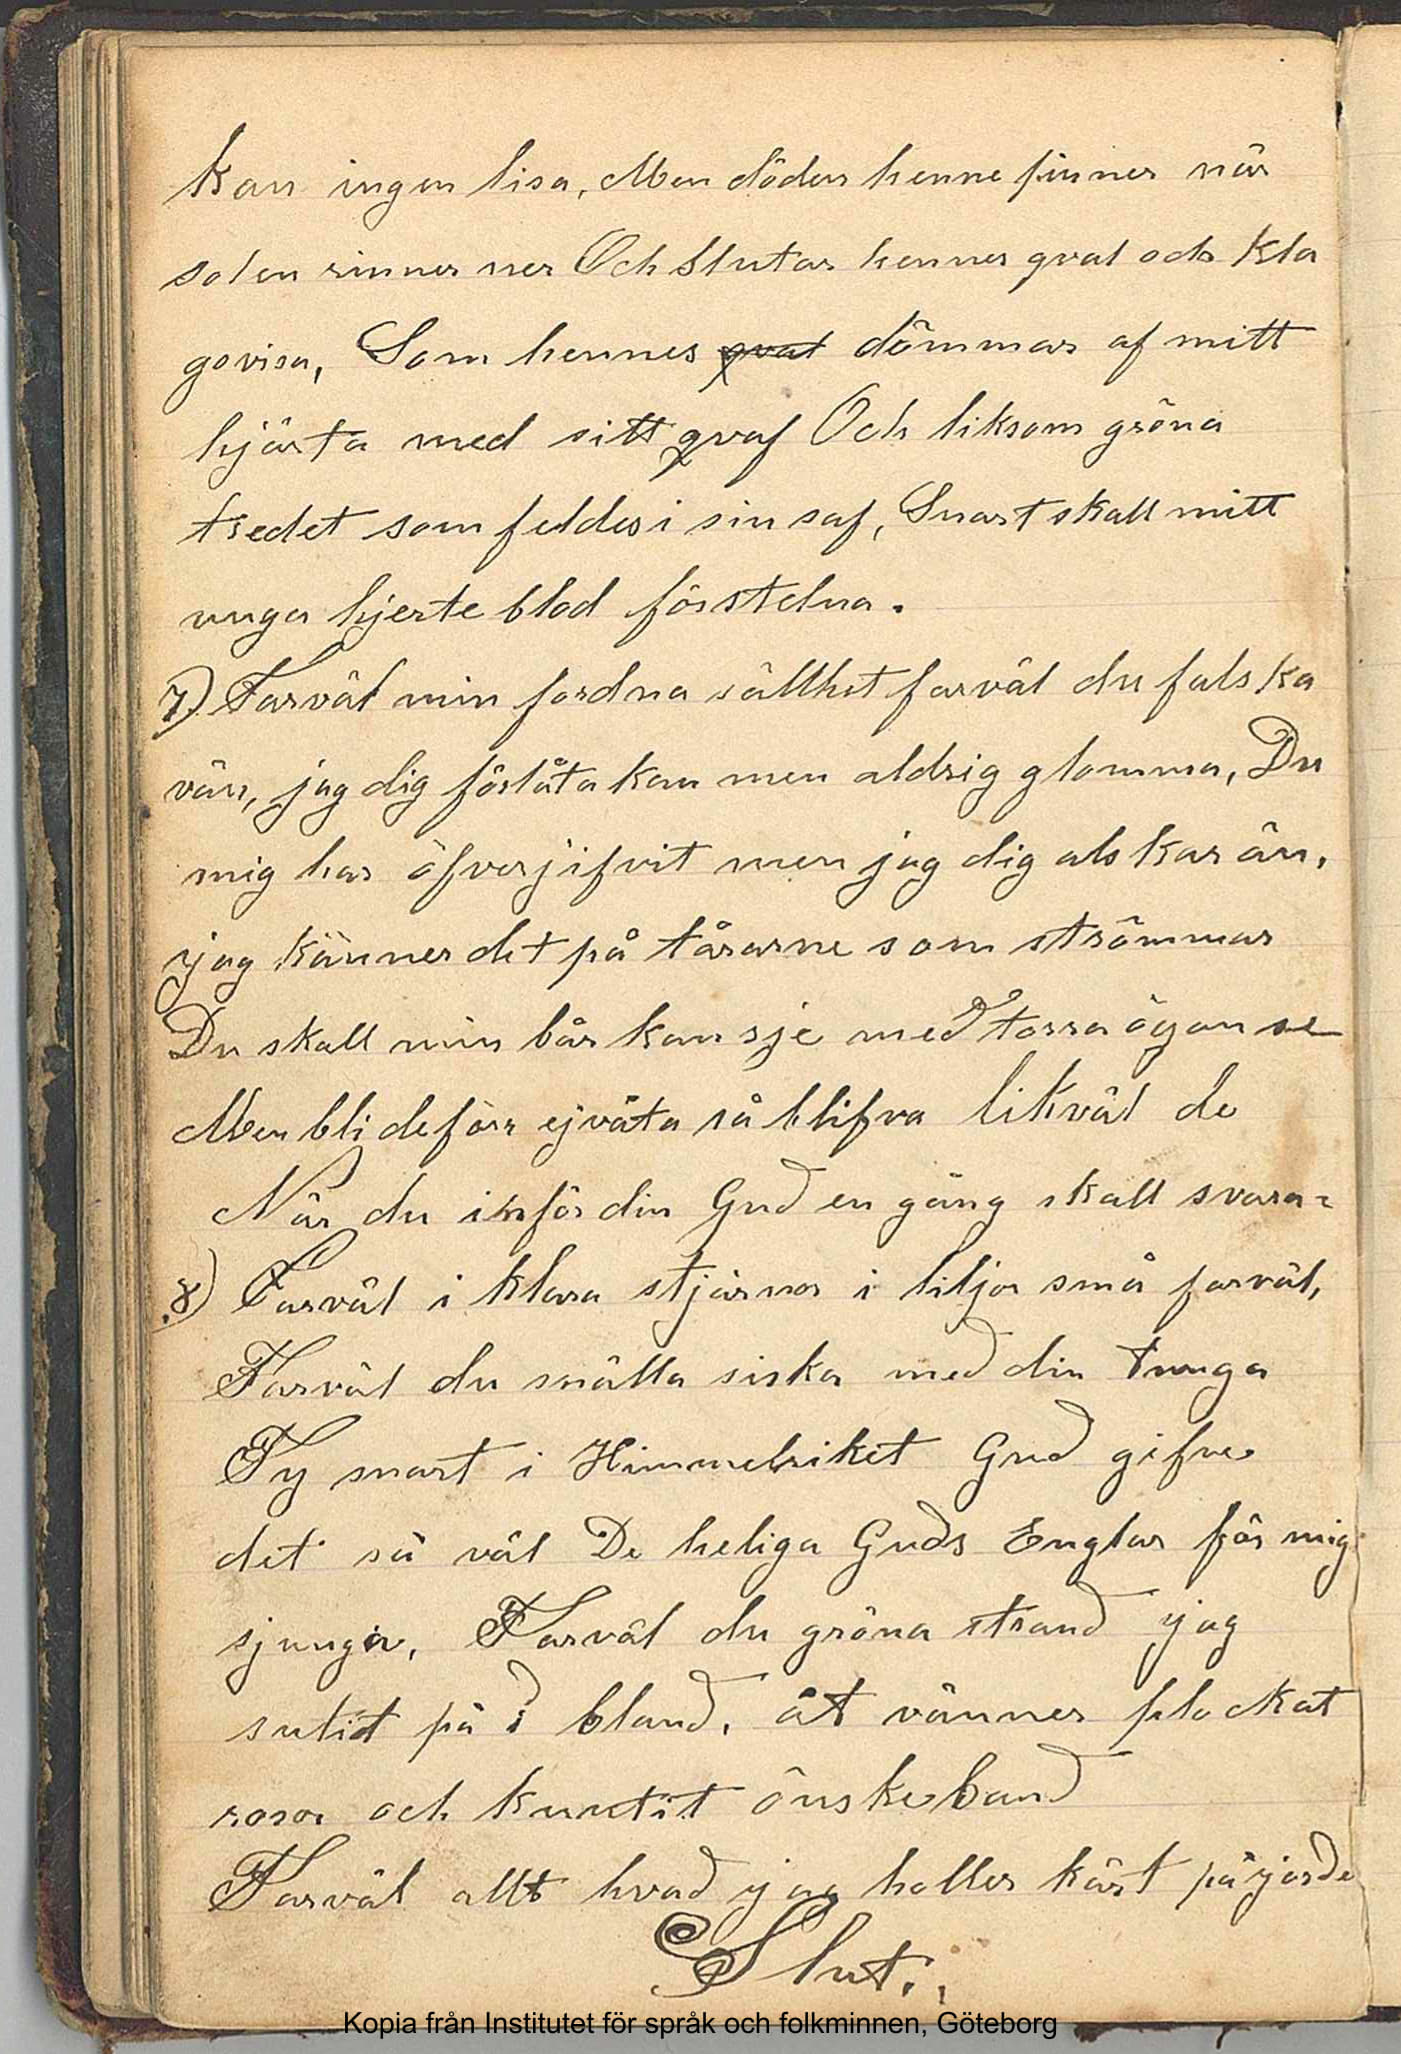 kan ingen lisa, Men döden henne finner när
solen rinner ner Och Slutar hennes qval och kla
govisa, Som hennes qval dömmar af mitt
hjärta med sitt qvaf Och liksom gröna
tredet som feldes i sin saf, Snart skall mitt
unga hjerte blod förstelna.
7) Farväl min fordna sällhet farväl du falska
vän, jag dig förlåta kan men aldrig glomma, Du
mig har öfverjifvit men jag dig alskar än,
jag känner det på tårarne som strömmar
Du skall min bår kansje med torra ögon se
Men bli de förr ej våta så blifva likväl de
När du inför din Gud en gång skall svara-
8) Farväl i klara stjärnor i liljor små farväl,
Farväl du snälla siska med din tunga
Ty snart i Himmelriket Gud gifve
det så väl De heliga Guds Englar för mig
sjunga, Farväl du gröna strand jag
sutit på i bland, åt vänner plockat
rosor och knutit önskeband
Farväl allt hvad jag håller kärt på jorde
Slut.
Kopia från Institutet för språk och folkminnen, Göteborg